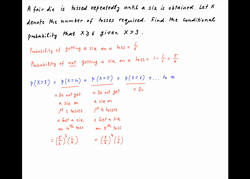 A fair die is tossed repeatedly until a six is obtained. Let X
denote the number of tosses required. Find the conditional
probability that X ⩾ 6 given X > 3.
Probability of getting a six on a toss = 1/6
Probability of not getting a six on a toss = 1 - 1/6 = 5/6
P(X>3) = P(X=4) + P(X=5) + P(X=6) + ... to ∞
= Do not get
a six on
1st 3 tosses
x Get a six
on 4th toss
= Do not get
a six on
1st 4 tosses
x Get a six
on 5th toss
= Do
= (5/6)³ (1/6)
= (5/6)⁴ (1/6)